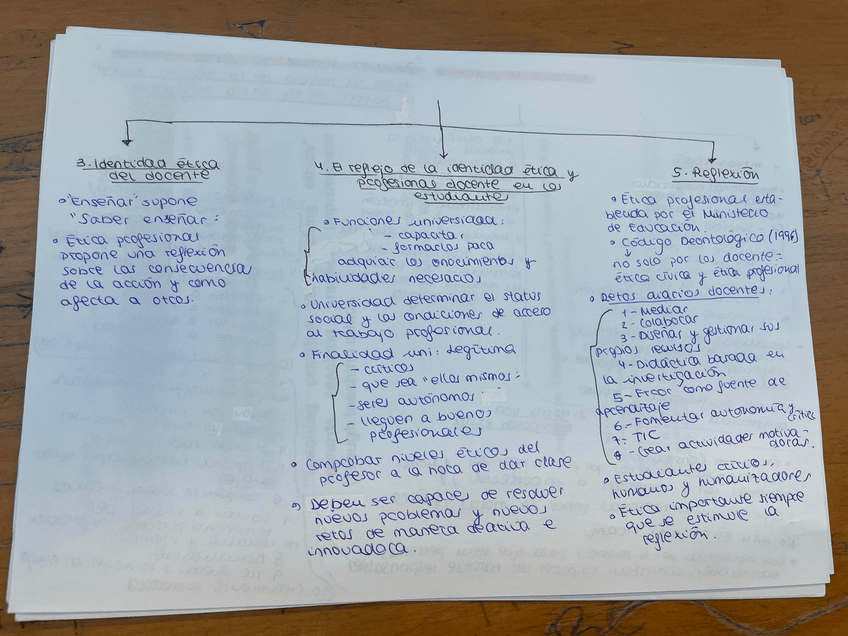 3. Identidad ética
del docente
• "Enseñar" supone
"Saber enseñar".
• Ética profesional
propone una reflexión
sobre las consecuencias
de la acción y como
afecta a otros.
4. El reflejo de la identidad ética y
profesional docente en los
estudiante
• Funciones universidad:
- capacitar
- formarlos para
adquirir los conocimientos y
habilidades necesarios
• Universidad determinar el status
social y las condiciones de acceso
al trabajo profesional.
• Finalidad uni: Legítima
- críticos
- que sea "ellos mismos"
- seres autónomos
- lleguen a buenos
profesionales
• Comprobar niveles éticos del
profesor a la hora de dar clase
• Deben ser capaces de resolver
nuevos problemas y nuevos
retos de manera creativa e
innovadora.
5. Reflexión
• Ética profesional esta-
blecida por el Ministerio
de Educación.
• Código Deontológico (1996)
↓
no solo por los docente:
ética cívica y ética profesional
• Retos diarios docentes:
1 - Mediar
2 - Colaborar
3 - Diseñar y gestionar sus
propios recursos
4 - Didáctica basada en
la investigación
5 - Error como fuente de
aprendizaje
6 - Fomentar autonomía y crítica
7 - TIC
8 - Crear actividades motiva-
doras.
• Estudiantes críticos,
humanos y humanizadores
• Ética importante siempre
que se estimule la
reflexión.